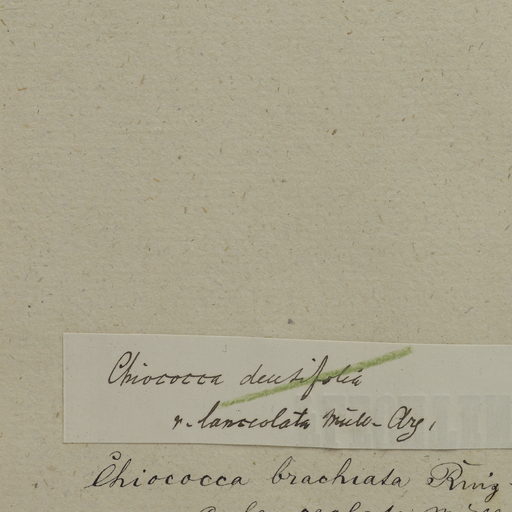 Chiococca densifolia
v. lanceolata Müll-Arg,
Chiococca brachiata Ruiz